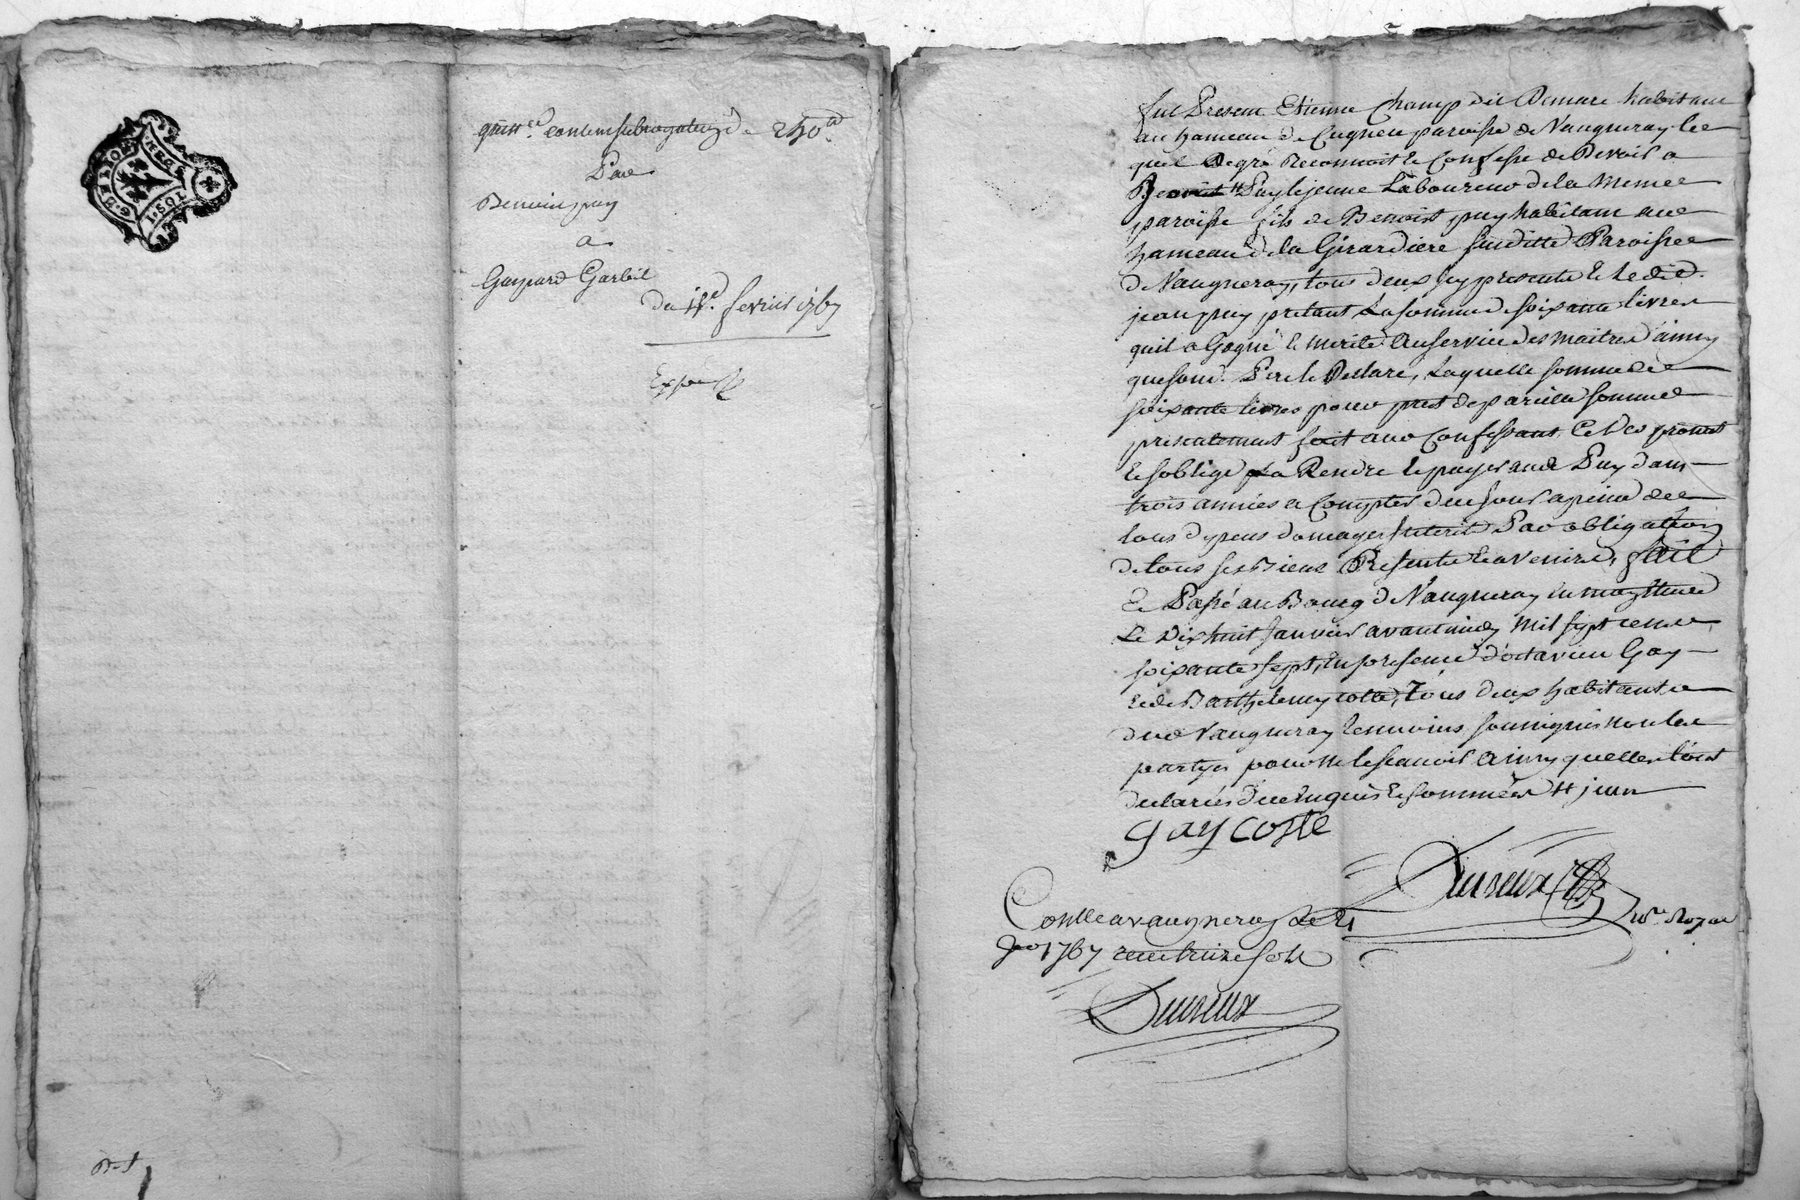 quitt.ce contens subrogation de 240 ll
Par
Benoit puy
a
Gaspard Garbit
du 18.e fevrier 1767
Exp
fut Present Etienne Champ dit Demare habitant
au hameau de Cugneu paroisse de Vaugneray le
quel de gré Reconnoit & Confesse de Devoir a
Puy le jeune Laboureur de la Meme
paroisse fils de Benoist puy habitant au
hameau de la Girardiere susditte Paroisse
de Vaugneray, tous deux icy presents & le dit
jean puy pretant La somme de soixante livres
quil a Gagné & merité au service des maitres ainsy
que sond. Pere le Declare, Laquelle somme de
soixante livres pour prest de pareille somme
presentement fait aud Confessant Ce des promet
& soblige La Rendre & payer aud Puy dans
trois années a Compter de ce jour a peine de
tous depens domages interet Par obligation
de tous ses Biens Presents & a venir, fait
& Passé au Bourg de Vaugneray en
Le Dix huit Janvier avant midy Mil sept cent
soixante sept, en presence d'octavien Gay
& de Barthelemy coste, Tous deux habitants
dud Vaugneray temoins soussignés non les
partyes pour ne le scavoir ainsy quelles l'ont
declarées de ce enquis & sommées # jean
gay coste
Dusieux n.re Royal
Con.lle a vaugneray Le 21
Jer 1767 reçu treize sols
Dusieux